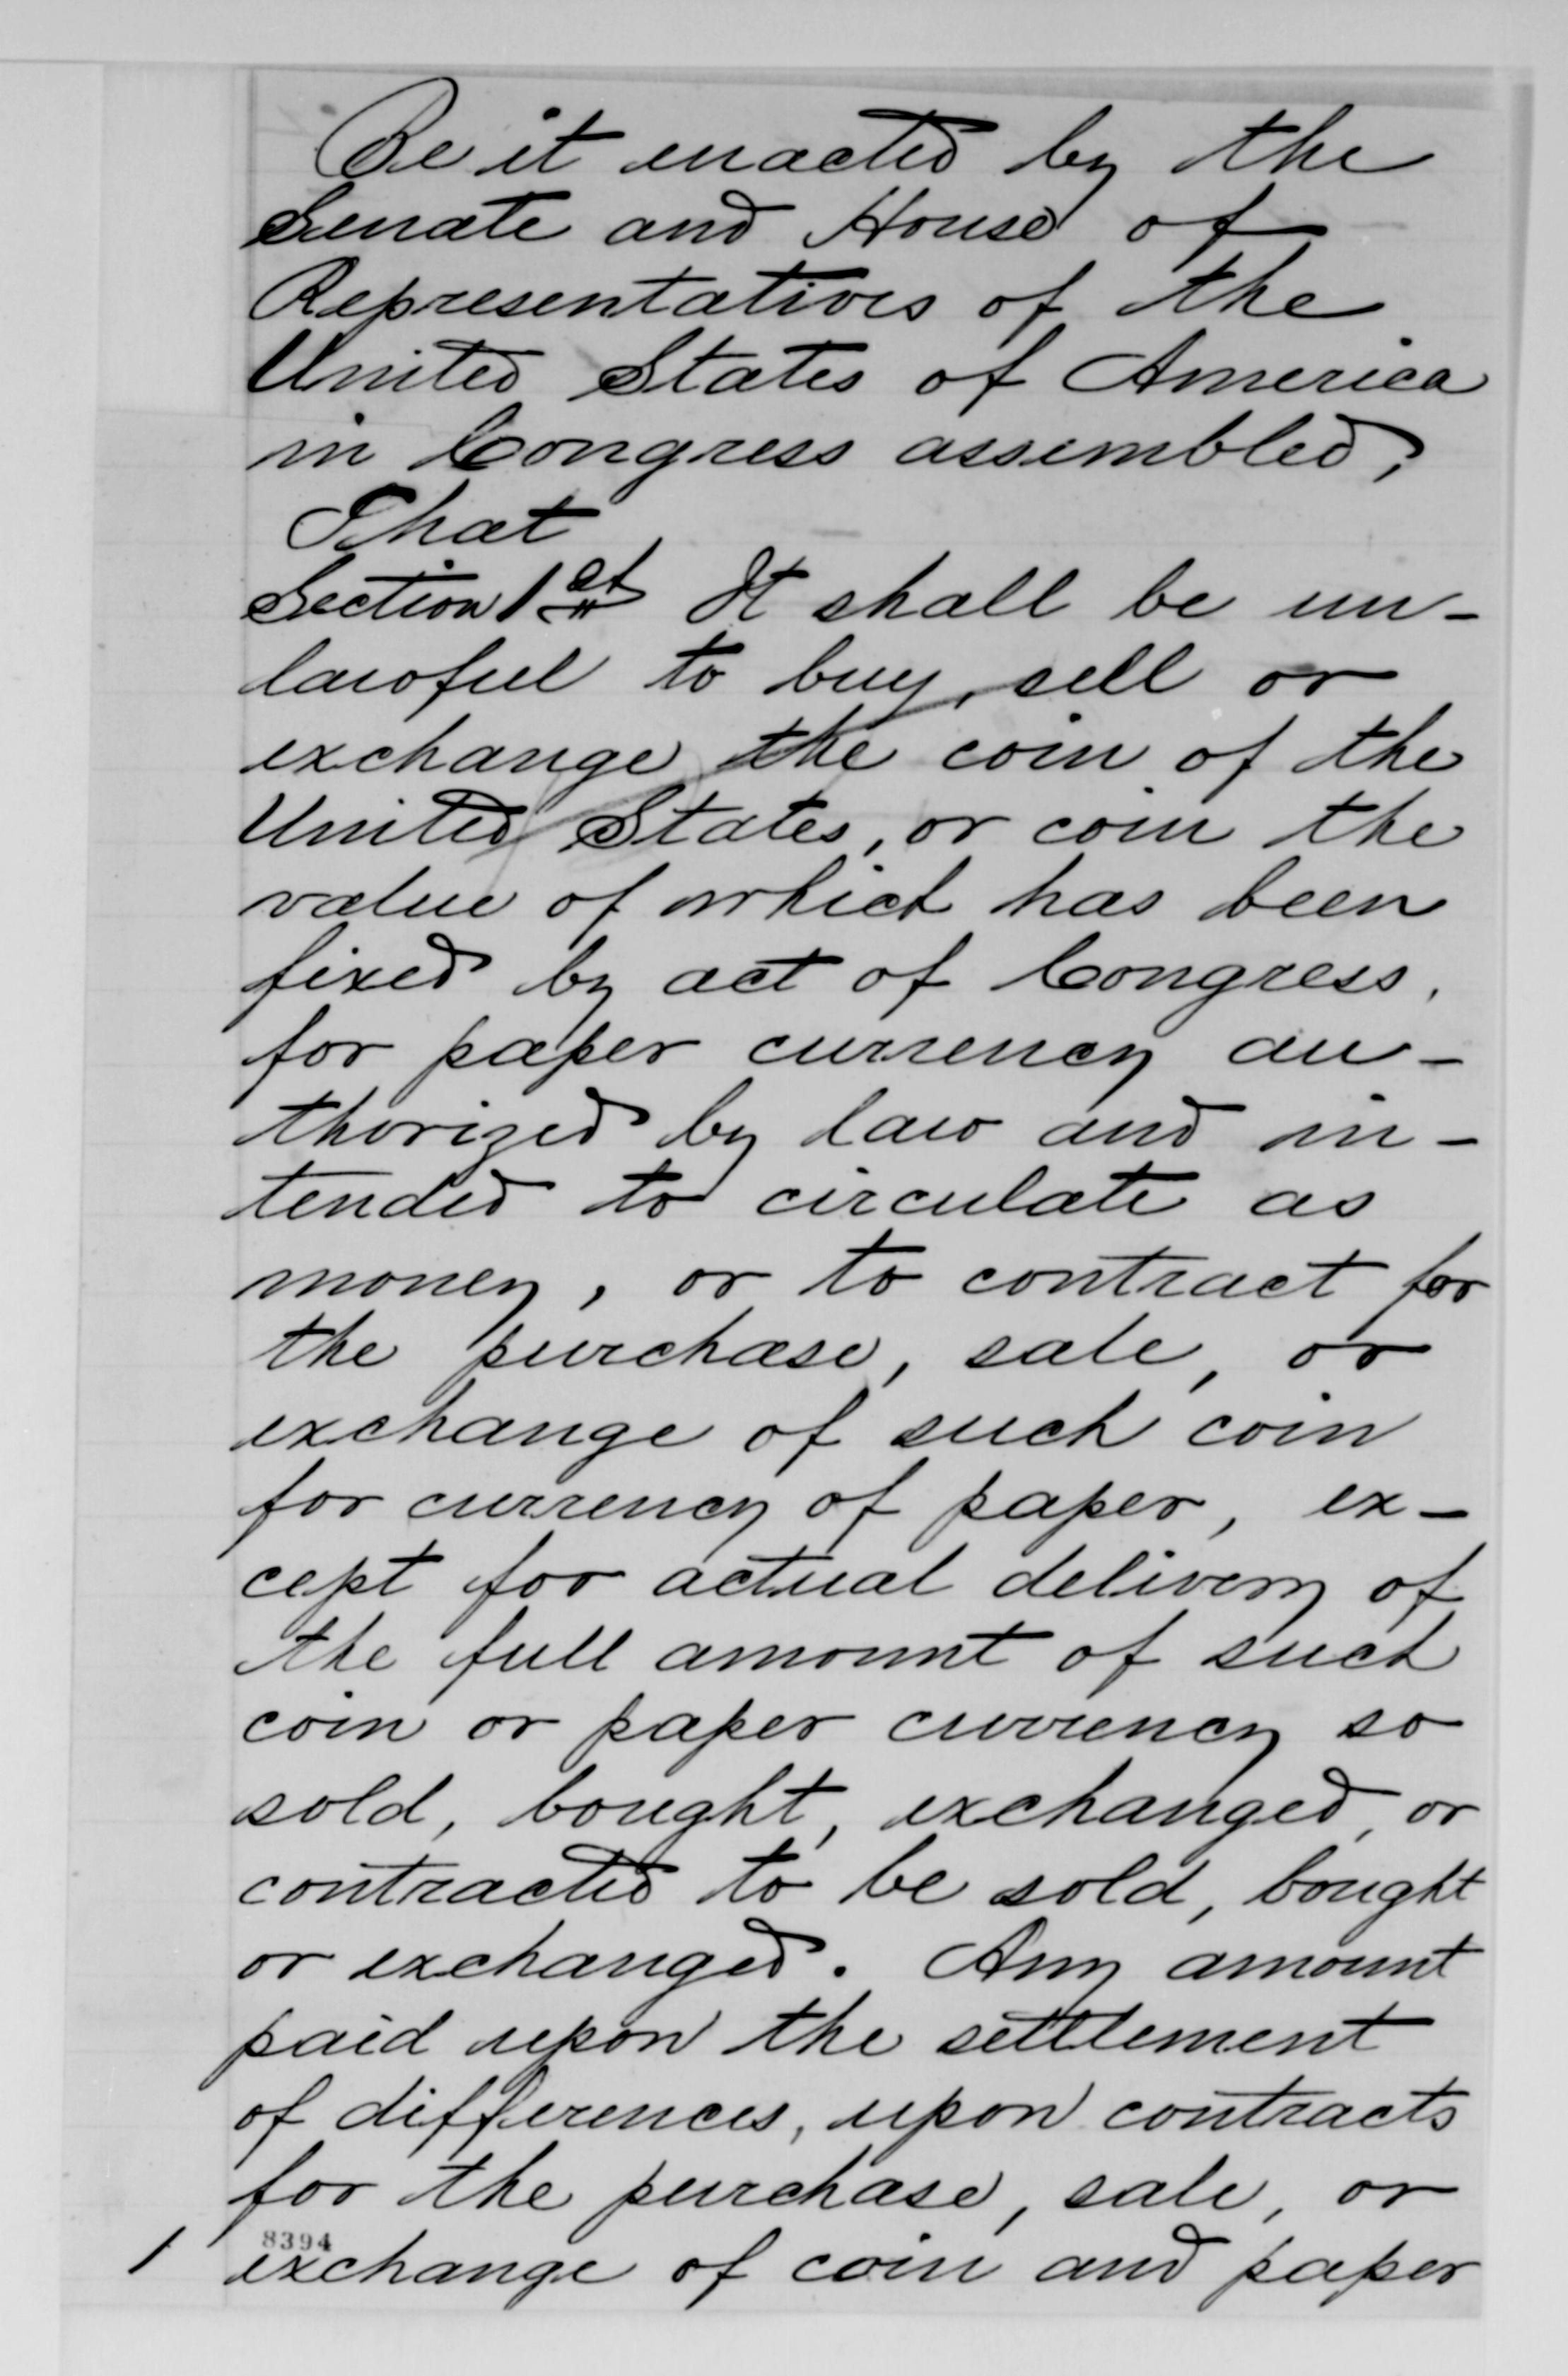 Be it enacted by the
Senate and House of
Representatives of the
United States of America
in Congress assembled,
That
Section 1st It shall be un-
lawful to buy, sell or
exchange the coin of the
United States, or coin the
value of which has been
fixed by act of Congress,
for paper currency au-
thorized by law and in-
tended to circulate as
money, or to contract for
the purchase, sale, or
exchange of such coin
for currency of paper, ex-
cept for actual delivery of
the full amount of such
coin or paper currency so
sold, bought, exchanged, or
contracted to be sold, bought
or exchanged. Any amount
paid upon the settlement
of differences, upon contracts
for the purchase, sale, or
8394
1 exchange of coin and paper